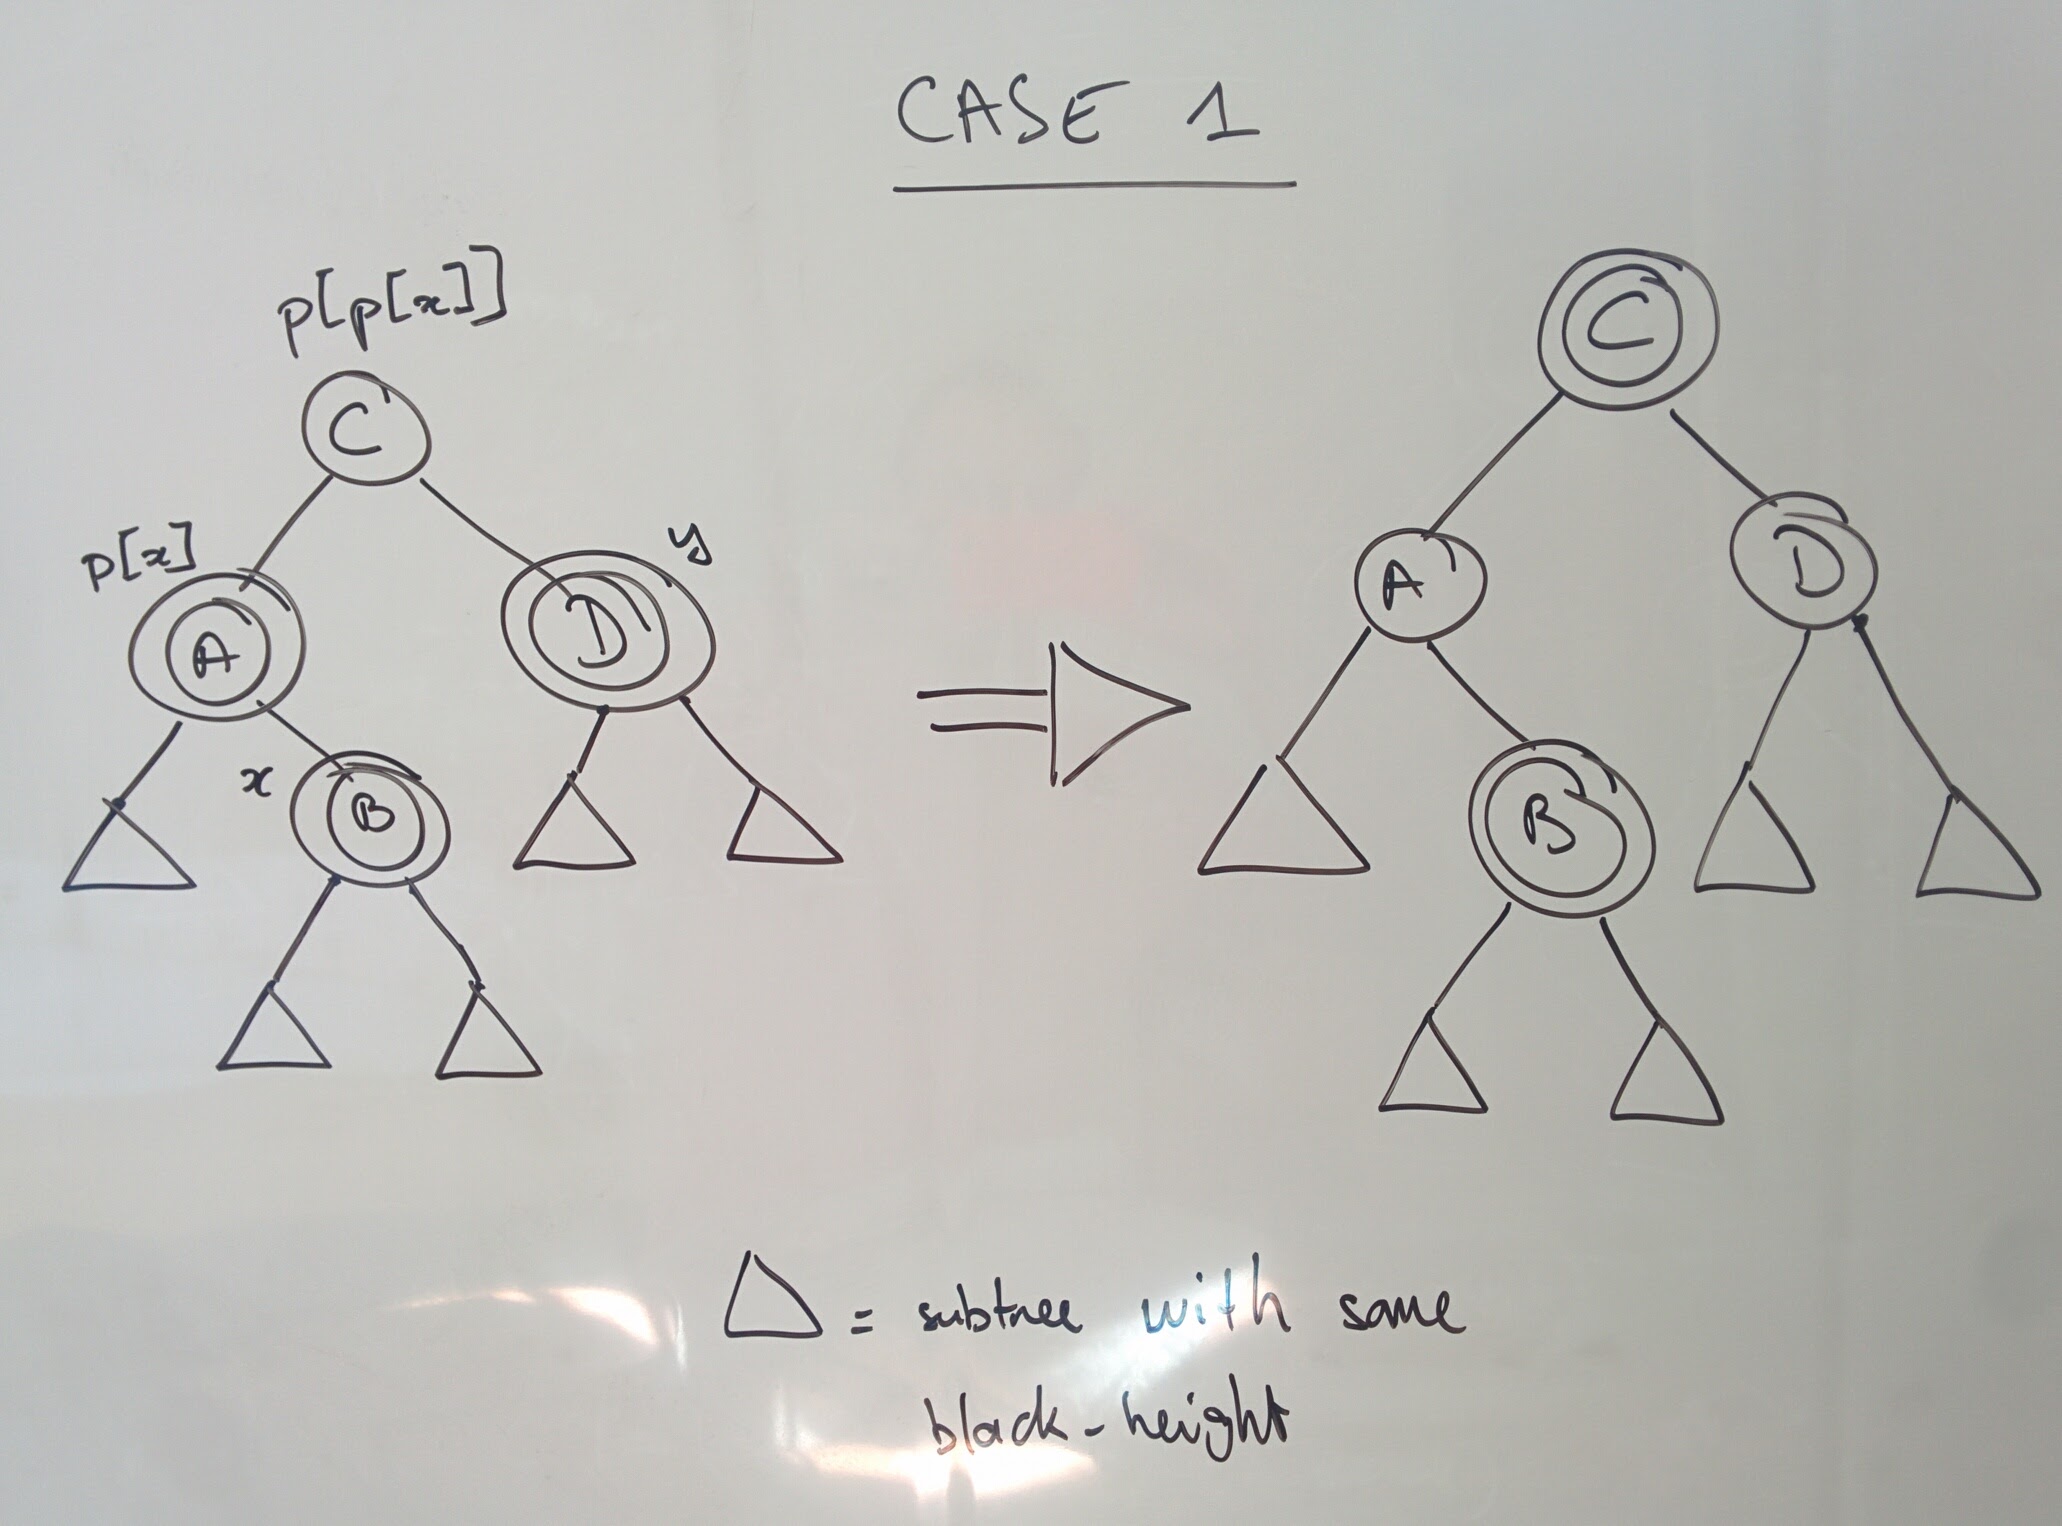 CASE 1
p[p[x]]
C
C
p[x]
y
A
D
A
D
x
B
B
= subtree with same
black-height